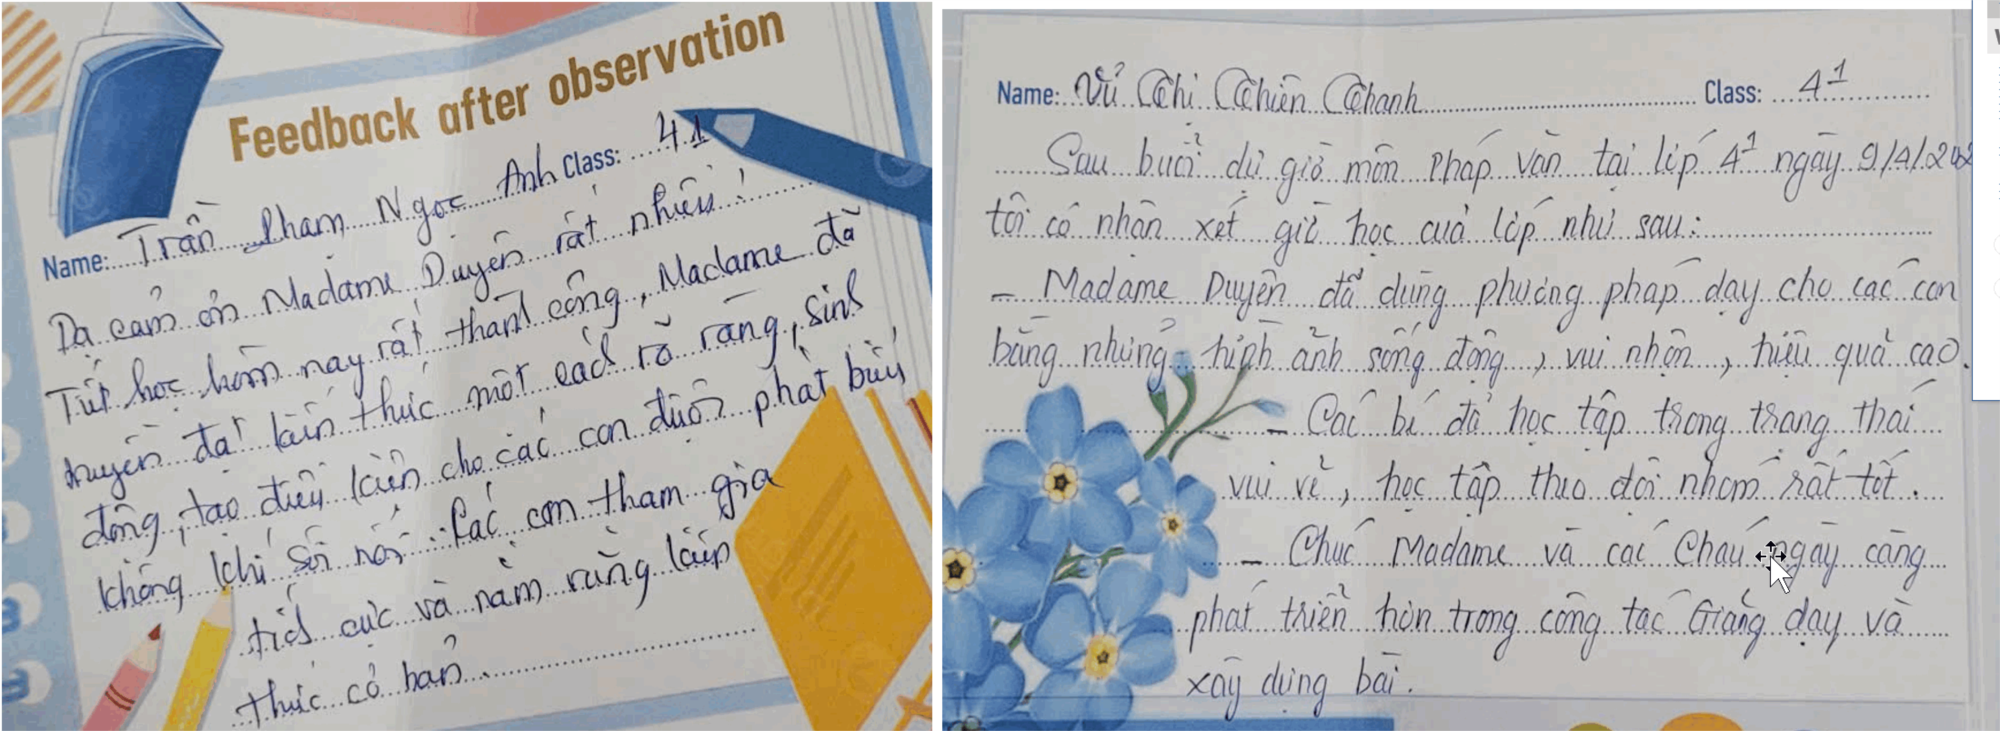 Feedback after observation
Name: Trần Phạm Ngọc Anh Class: 4.1
Dạ cảm ơn Madame Duyên rất nhiều!
Tiết học hôm nay rất thành công, Madame đã
truyền đạt kiến thức một cách rõ ràng, sinh
động, tạo điều kiện cho các con được phát biểu
không khí sôi nổi. Các con tham gia
tích cực và nắm vững kiến
thức cơ bản.
Name: Vũ Thị Thiên Thanh Class: 4¹
Sau buổi dự giờ môn Pháp văn tại lớp 4¹ ngày 9/4/202
tôi có nhận xét giờ học của lớp như sau:
- Madame Duyên đã dùng phương pháp dạy cho các con
bằng những hình ảnh sống động, vui nhộn, hiệu quả cao.
- Các bé đã học tập trong trạng thái
vui vẻ, học tập theo đội nhóm rất tốt.
- Chúc Madame và các Cháu ngày càng
phát triển hơn trong công tác Giảng dạy và
xây dựng bài.